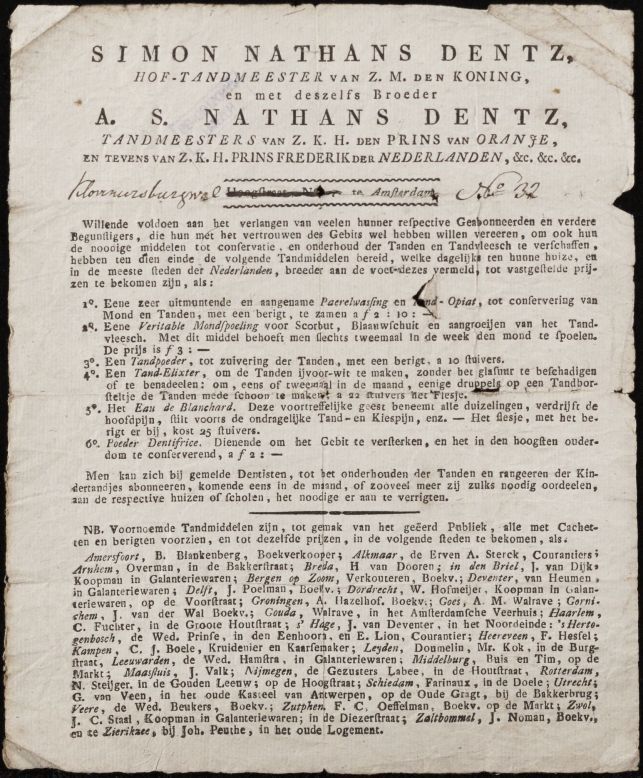 SIMON NATHANS DENTZ,
HOF-TANDMEESTER VAN Z. M. DEN KONING,
en met deszelfs Broeder
A. S. NATHANS DENTZ,
TANDMEESTERS VAN Z. K. H. DEN PRINS VAN ORANJE,
EN TEVENS VAN Z. K. H. PRINS FREDERIK DER NEDERLANDEN, &c. &c. &c.
Kloveniersburgwal Hoogstraat te Amsterdam No 32
Willende voldoen aan het verlangen van veelen hunner reſpective Geabonneerden en verdere
Begunſtigers, die hun met het vertrouwen des Gebits wel hebben willen vereeren, om ook hun
de noodige middelen tot conſervatie, en onderhoud der Tanden en Tandvleesch te verſchaffen,
hebben ten dien einde de volgende Tandmiddelen bereid, welke dagelijks ten hunne huize, en
in de meeste ſteden der Nederlanden, breeder aan de voet dezes vermeld, tot vastgeſtelde prij-
zen te bekomen zijn, als:
1o. Eene zeer uitmuntende en aangename Paerelwasſing en Tand-Opiat, tot conſervering van
Mond en Tanden, met een berigt, te zamen a f 2 : 10 : —
2o. Eene Veritable Mondſpoeling voor Scorbut, Blaauwſchuit en aangroeijen van het Tand-
vleesch. Met dit middel behoeft men ſlechts tweemaal in de week den mond te ſpoelen.
De prijs is f 3 : —
3o. Een Tandpoeder, tot zuivering der Tanden, met een berigt, a 10 ſtuivers.
4o. Een Tand-Elixter, om de Tanden ijvoor-wit te maken, zonder het glaſuur te beſchadigen
of te benadeelen: om, eens of tweemaal in de maand, eenige druppels op een Tandbor-
ſteltje de Tanden mede ſchoon te maken, a 22 ſtuivers het Flesje.
5o. Het Eau de Blanchard. Deze voortreffelijke geest beneemt alle duizelingen, verdrijft de
hoofdpijn, ſtilt voorts de ondragelijke Tand- en Kiespijn, enz. — Het flesje, met het be-
rigt er bij, kost 25 ſtuivers.
6o. Poeder Dentifrice. Dienende om het Gebit te verſterken, en het in den hoogſten ouder-
dom te conſerverend, a f 2 : —
Men kan zich bij gemelde Dentisten, tot het onderhouden der Tanden en rangeeren der Kin-
dertandjes abonneeren, komende eens in de maand, of zooveel meer zij zulks noodig oordeelen,
aan de reſpective huizen of ſcholen, het noodige er aan te verrigten.
NB. Voornoemde Tandmiddelen zijn, tot gemak van het geëerd Publiek, alle met Cachet-
ten en berigten voorzien, en tot dezelfde prijzen, in de volgende ſteden te bekomen, als.
Amersfoort, B. Blankenberg, Boekverkooper; Alkmaar, de Erven A. Sterck, Courantiers;
Arnhem, Overman, in de Bakkerſtraat; Breda, H van Dooren; in den Briel, J. van Dijk,
Koopman in Galanteriewaren; Bergen op Zoom, Verkouteren, Boekv.; Deventer, van Heumen,
in Galanteriewaren; Delft, J. Poelman, Boekv.; Dordrecht, W. Hofmeijer, Koopman in Galan-
teriewaren, op de Voorſtraat; Groningen, A. Hazelhof. Boekv.; Goes, A. M. Walrave; Gorni-
chem, J. van der Wal Boekv.; Gouda, Walrave, in het Amſterdamſche Veerhuis; Haarlem,
C. Fuchter, in de Groote Houtſtraat; s' Hage, J. van Deventer, in het Noordeinde: 's Herto-
genbosch, de Wed. Prinſe, in den Eenhoorn, en E. Lion, Courantier; Heereveen, F. Hesſel;
Kampen, C. J. Boele, Kruidenier en Kaarſemaker; Leyden, Doumelin, Mr. Kok, in de Burg-
ſtraat, Leeuwarden, de Wed. Hamſtra, in Galanteriewaren; Middelburg, Buis en Tim, op de
Markt; Maasſluis, J. Valk; Nijmegen, de Gezusters Labee, in de Houtſtraat, Rotterdam,
N. Steijger, in de Gouden Leeuw; op de Hoogſtraat; Schiedam, Farinaux, in de Doele; Utrecht;
G. van Veen, in het oude Kasteel van Antwerpen, op de Oude Gragt, bij de Bakkerbrug;
Veere, de Wed. Beukers, Boekv.; Zutphen, F. C. Oeffelman, Boekv. op de Markt; Zwol,
J. C. Staal, Koopman in Galanteriewaren; in de Diezerſtraat; Zaltbommel, J. Noman, Boekv.,
en te Zierikzee, bij Joh. Peuthe, in het oude Logement.